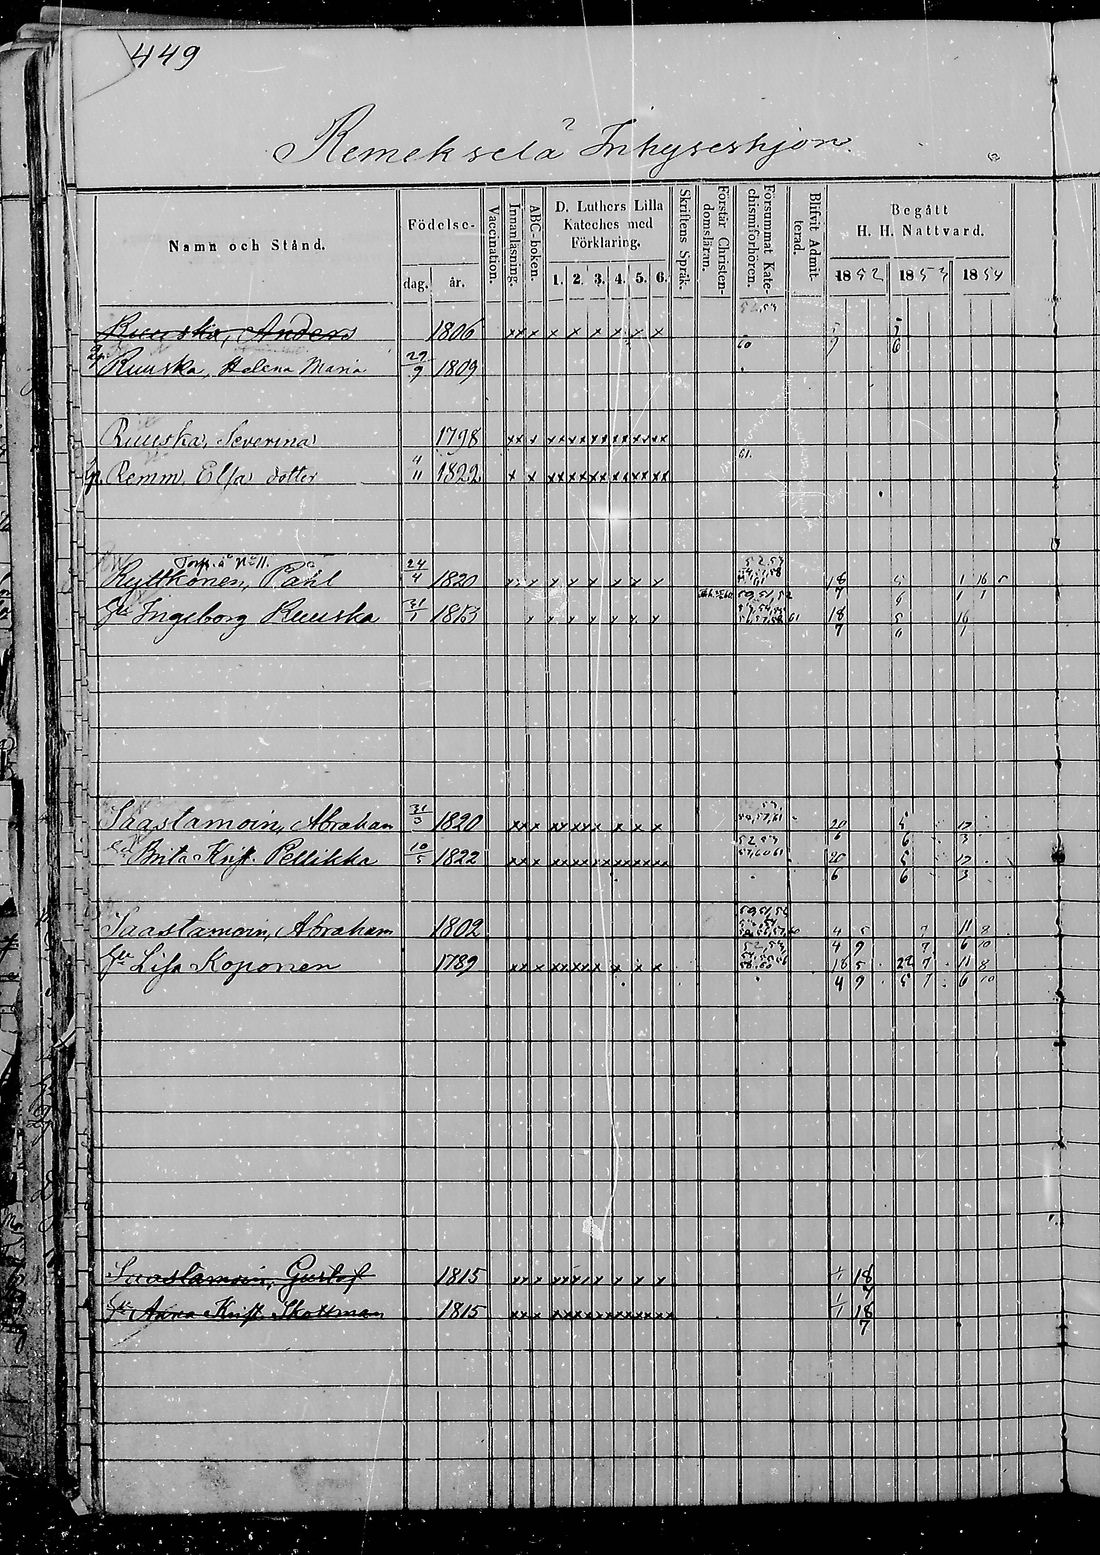 449
Remekselä Inhyseshjon
Namn och Stånd. Födelse- dag. år. Vaccination. Innanläsning. ABC-boken. D. Luthers Lilla Kateches med Förklaring. 1. 2. 3. 4. 5. 6. Skriftens Språk. Förstår Christendomsläran. Försummat Katechismiförhören. Blifvit Admitterad. Begått H. H. Nattvard. 1852 1853 1854
52,53
Ruuska, Anders 1806 xx x x x x x x x 5 5
Ruuska, Helena Maria 29/9 1809 60 9 6
Ruuska, Severina 1798 xx x xx xx xx xx xx xx
Remm, Elsa dotter 4/11 1822 x x xx xx xx xx xx xx 61
Torp. å No 11.
Rytkönen, Påhl 24/4 1820 xx x x x x x x x 18 5 1 16 5
7 6 1 1
Ingeborg Ruuska 31/1 1813 x x x x x x x 61 18 5 16
7 6 1
Saastamoin, Abraham 31/3 1820 xx x xx xx x x x x 57,61 20 5 12
6 6 3
Brita Krist. Pellikka 10/5 1822 xx x xx xx xx xx xx xx 52,53 57,60,61 20 5 12
6 6 3
Saastamoin, Abraham 1802 4 5 7 11 8
4 9 7 6 10
Lisa Koponen 1789 xx x xx xx x x x x 52,53 18 5 22 7 11 8
4 9 5 7 6 10
Saastamoin, Gustaf 1815 xx x xx xx x x x x 1/1 18
7
Anna Krist. Skottman 1815 xx x xx xx xx xx xx xx 1/1 18
7